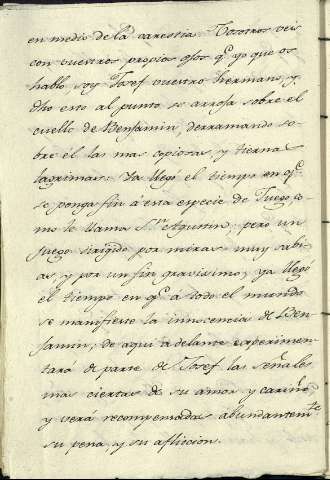 en medio de la carestia. Vosotros veis
con vuestros propios ojos q.e yo que os
hablo, soy Josef vuestro hermano, y
dho esto al punto se arroja sobre el
cuello de Benjamin, derramando so-
bre él las mas copiosas, y tiernas
lagrimas. Ya llegó el tiempo en q.e
se ponga fin à esta especie de Juego, co-
mo le llama S.n Agustin; pero un
juego dirigido por miras muy sabi-
as, y por un fin gravisimo; ya llegó
el tiempo en q.e à todo el mundo
se manifieste la innocencia de Ben-
jamin; de aqui adelante experimen-
tará de parte de Josef las señales
mas ciertas de su amor, y cariño
y verá recompensadas abundantem.te
su pena, y su afliccion.